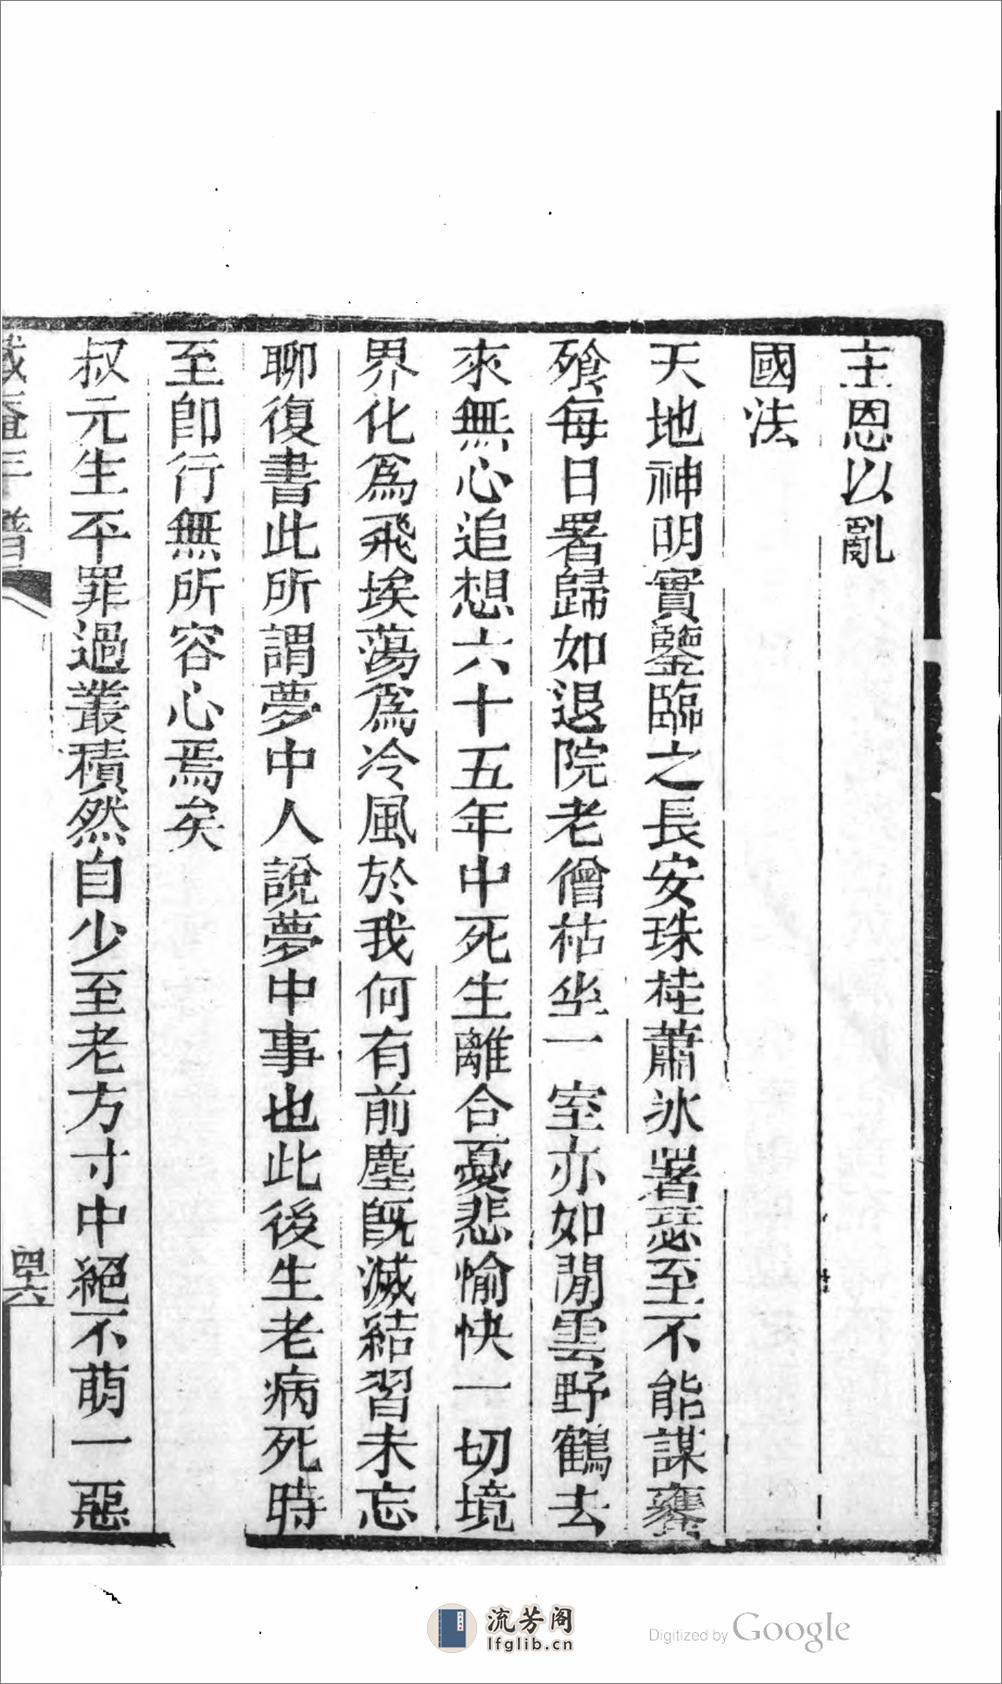 主恩以亂
國法
天地神明實鑒臨之長安珠桂蕭冰署瑟至不能謀饔
飱每日署歸如退院老僧枯坐一室亦如閒雲野鶴去
來無心追想六十五年中死生離合憂悲愉快一切境
界化爲飛埃蕩爲冷風於我何有前塵旣滅結習未忘
聊復書此所謂夢中人說夢中事也此後生老病死時
至卽行無所容心焉矣
叔元生平罪過叢積然自少至老方寸中絕不萌一惡
年譜
四十六
流芳阁
lfglib.cn
Digitized by Google